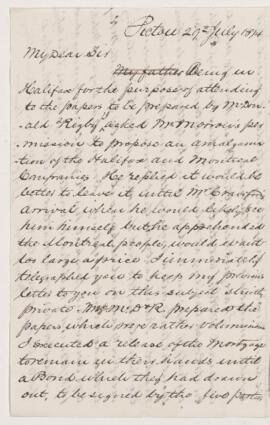 Pictou 29th July 1874
My Dear Sir
My father Being in
Halifax for the purpose of attending
to the papers to be prepared by McDon-
ald & Rigby I asked Mr Morrow's per
mission to propose an amalgama
tion of the Halifax and Montreal
Companies. He replied it would be
better to leave it until Mr
arrival when he would
him himself but he apprehended
the Montreal people would want
too large a price I immediately
telegraphed you to keep my previous
letter to you on this subject strictly
private. Mess McD & R. prepared the
papers which were rather Voluminous
I executed a release of the Mortgage
to remain in their hands until
a Bond which they had drawn
out, to be signed by the five parties